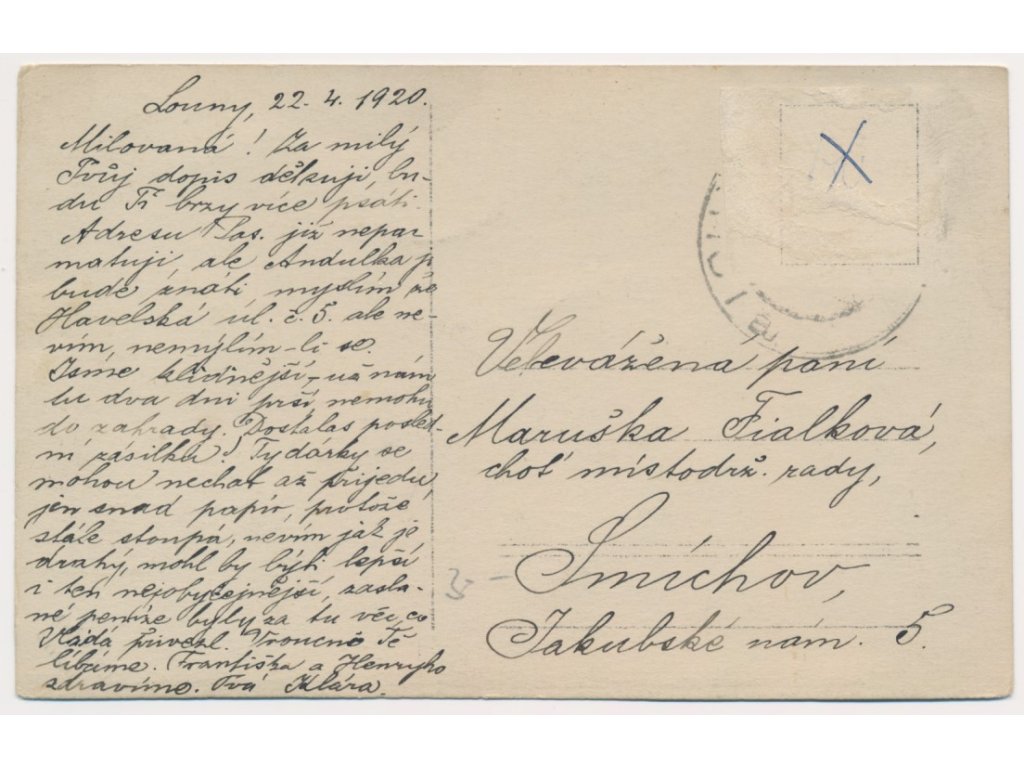 Louny, 22. 4. 1920.
Milovaná! Za milý
Tvůj dopis děkuji, bu-
du Ti brzy více psáti.
Adresu Pas. již nepa-
matuji, ale Andulka ji
bude znáti, myslím že
Havelská ul. č. 5. ale ne-
vím, nemýlím-li se.
Jsme klidnější, už nám
tu dva dni prší, nemohu
do zahrady. Dostalas posled-
ní zásilku? Ty dárky se
mohou nechat až přijedu,
jen snad papír, protože
stále stoupá, nevím jak je
drahý, mohl by býti lepší
i ten nejobyčejnější, zasla-
né peníze byly za tu věc, co
Vláďa přivezl. Vroucně Tě
líbáme. Františka a Henryho
zdravíme. Tvá Klára.
X
LOUN
1a
Velevážená paní
Maruška Fialková,
choť místodrž. rady,
Smíchov,
Jakubské nám. 5.